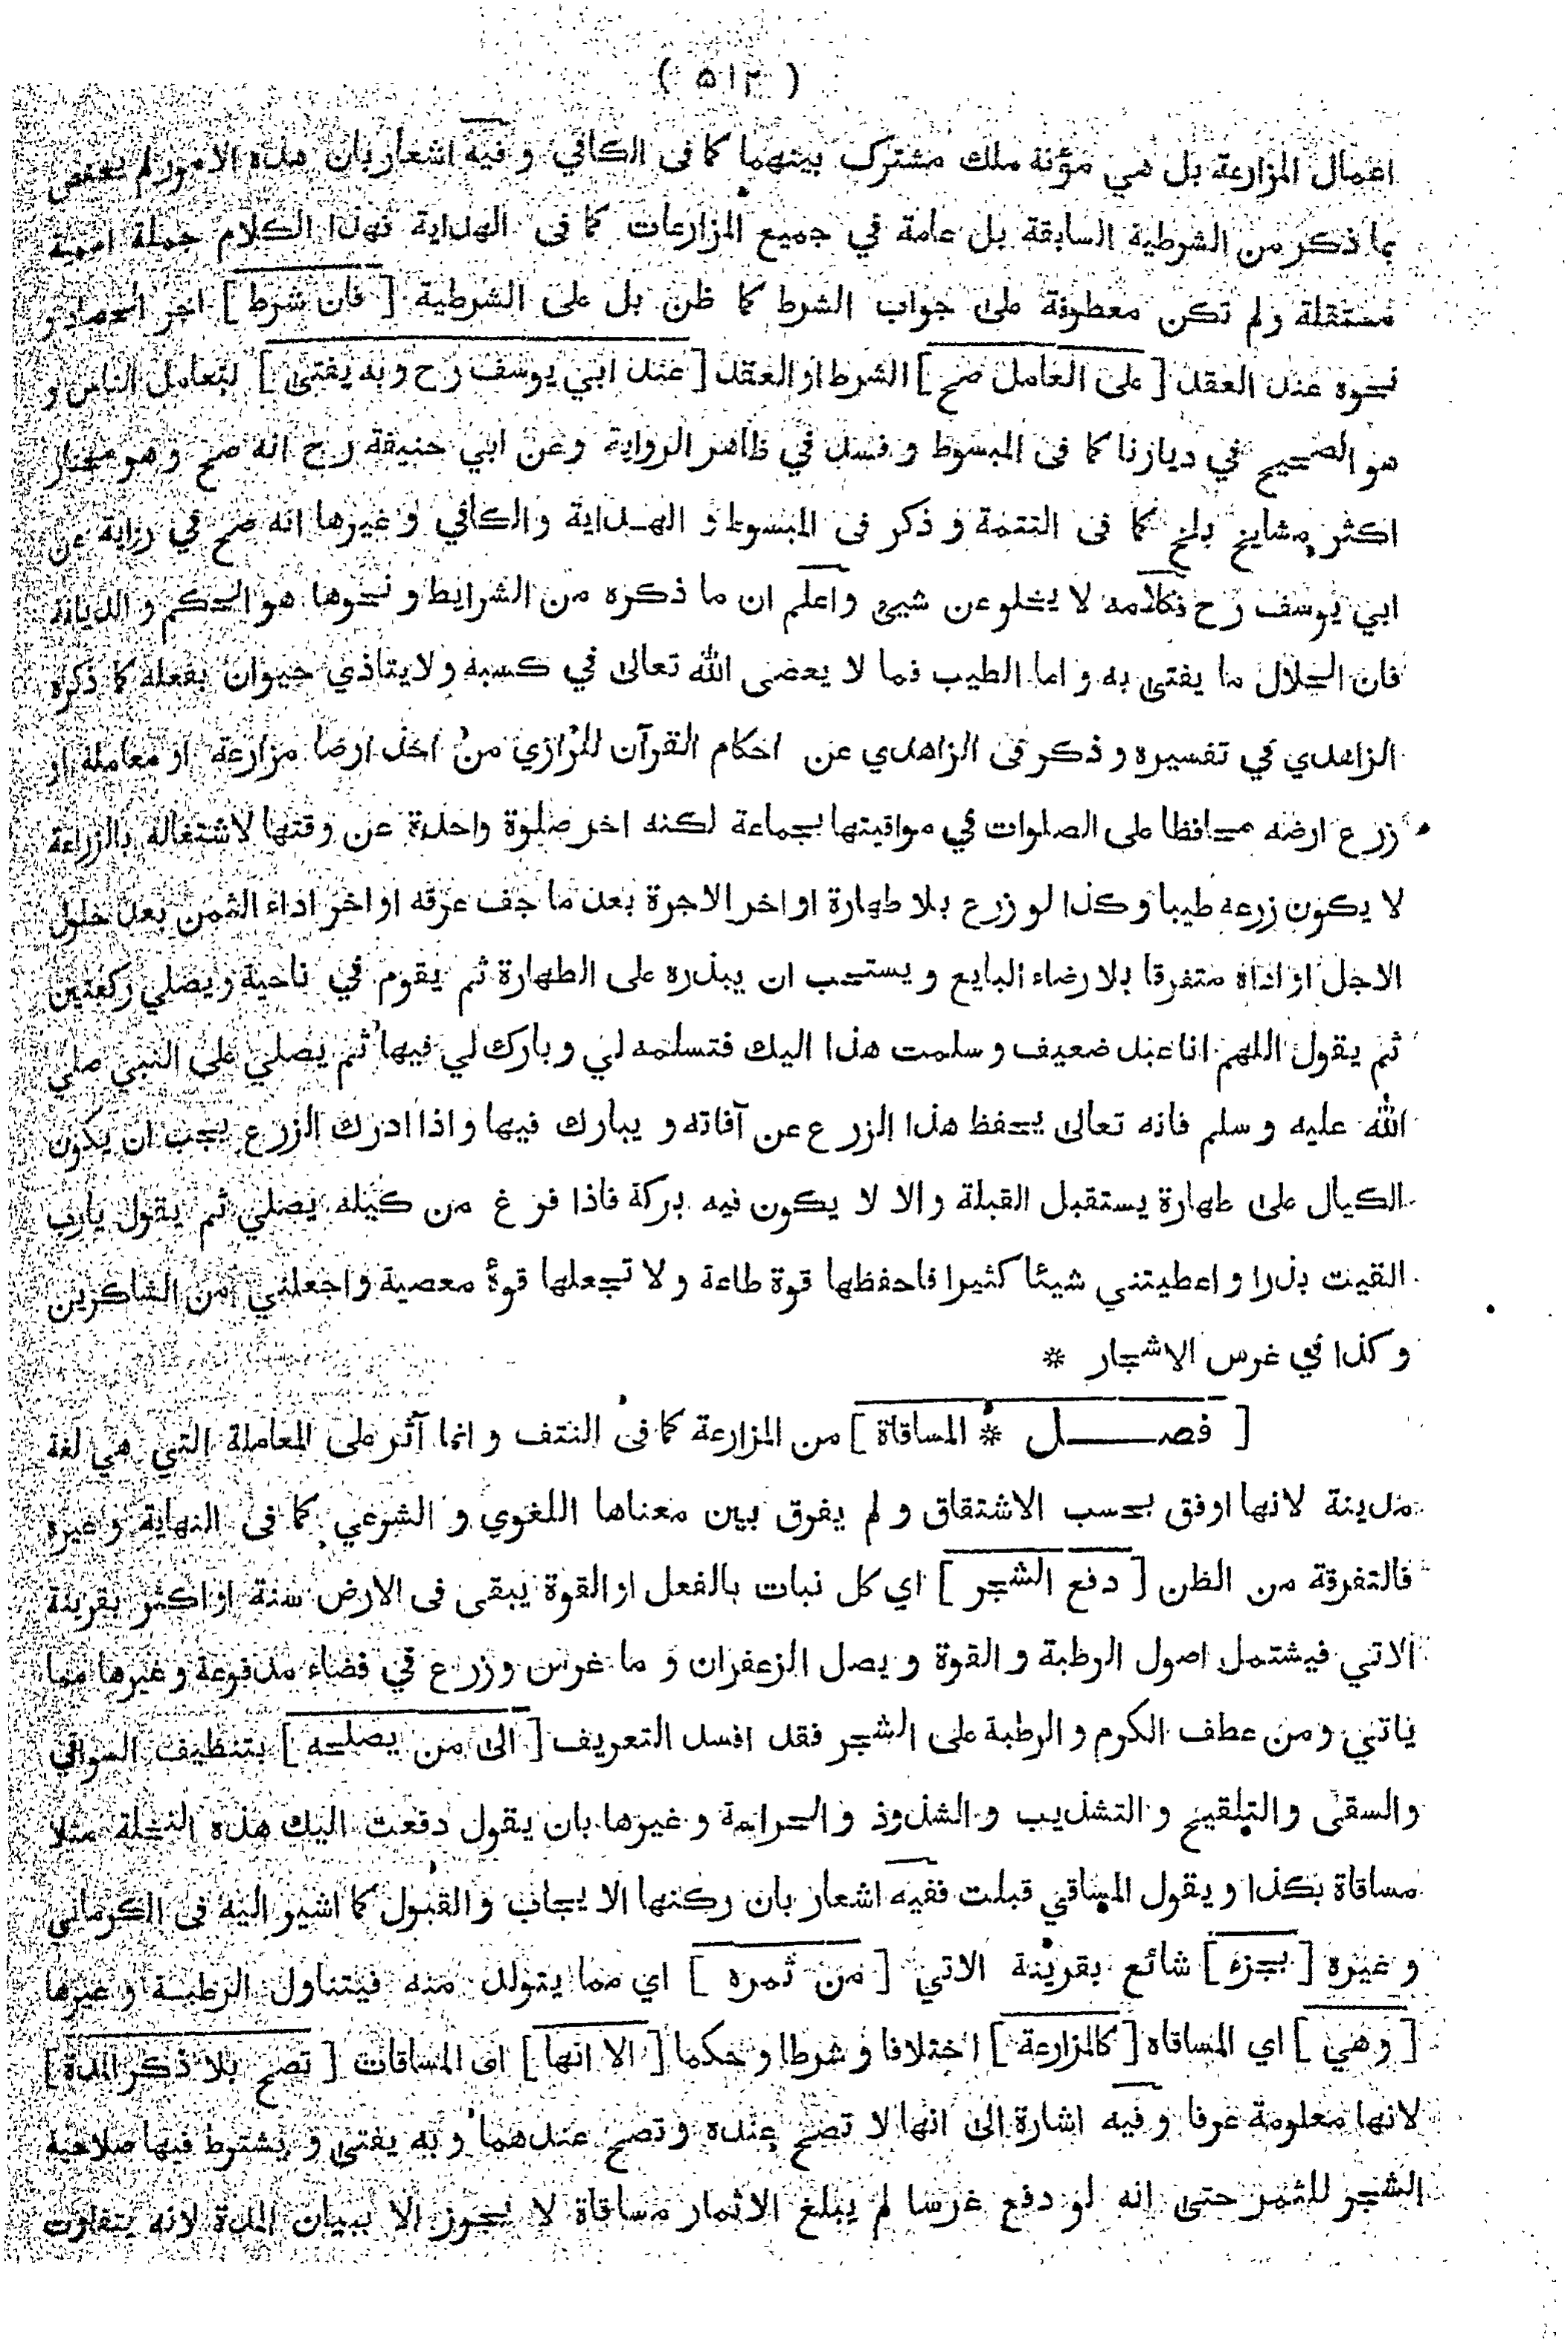 ( ٥١٢ )
اعمال المزارعة بل هي مؤنة ملك مشترك بينهما كما فى الكافي و فيه اشعار بان هذه الامور لم تختص
بما ذكر من الشرطية السابقة بل عامة في جميع المزارعات كما فى الهداية فهذا الكلام جملة اسمية
مستقلة ولم تكن معطوفة على جواب الشرط كما ظن بل على الشرطية [ فان شرط ] اجر الحصاد و
نحوه عند العقد [ على العامل صح ] الشرط او العقد [ عند ابي يوسف رح و به يفتى ] لتعامل الناس و
هو الصحيح في ديارنا كما فى المبسوط و فسد في ظاهر الرواية وعن ابي حنيفة رح انه صح و هو مختار
اكثر مشايخ بلخ كما فى التتمة و ذكر فى المبسوط و الهداية والكافي و غيرها انه صح في رواية عن
ابي يوسف رح فكلامه لا يخلو عن شيئ واعلم ان ما ذكره من الشرايط و نحوها هو الحكم و الديانة
فان الحلال ما يفتى به و اما الطيب فما لا يعصى الله تعالى في كسبه ولا يتاذي حيوان بفعله كما ذكره
الزاهدي في تفسيره و ذكر فى الزاهدي عن احكام القرآن للرازي من اخذ ارضا مزارعة او معاملة او
زرع ارضه محافظا على الصلوات في مواقيتها بجماعة لكنه اخر صلوة واحدة عن وقتها لاشتغاله بالزراعة
لا يكون زرعه طيبا و كذا لو زرع بلا طهارة او اخر الاجرة بعد ما جف عرقه او اخر اداء الثمن بعد حلول
الاجل او اداه متفرقا بلا رضاء البايع و يستحب ان يبذره على الطهارة ثم يقوم في ناحية و يصلي ركعتين
ثم يقول اللهم انا عبد ضعيف و سلمت هذا اليك فتسلمه لي و بارك لي فيها ثم يصلي على النبي صلى
الله عليه و سلم فانه تعالى يحفظ هذا الزرع عن آفاته و يبارك فيها و اذا ادرك الزرع يجب ان يكون
الكيال على طهارة يستقبل القبلة والا لا يكون فيه بركة فاذا فرغ من كيله يصلي ثم يقول يارب
القيت بذرا و اعطيتني شيئا كثيرا فاحفظها قوة طاعة و لا تجعلها قوة معصية واجعلني من الشاكرين
و كذا في غرس الاشجار *
[ فصـــل * المساقاة ] من المزارعة كما فى النتف و انما آثر على المعاملة التي هي لغة
مدينة لانها اوفق بحسب الاشتقاق و لم يفرق بين معناها اللغوي و الشرعي كما فى النهاية و غيره
فالتفرقة من الظن [ دفع الشجر ] اي كل نبات بالفعل او القوة يبقى فى الارض سنة او اكثر بقرينة
الاتي فيشتمل اصول الرطبة و القوة و بصل الزعفران و ما غرس وزرع في فضاء مدفوعة و غيرها مما
ياتي و من عطف الكرم و الرطبة على الشجر فقد افسد التعريف [ الى من يصلحه ] بتنظيف السواقي
والسقى و التلقيح و التشذيب و الشذوذ و الحراسة و غيرها بان يقول دفعت اليك هذه النخلة مثلا
مساقاة بكذا و يقول المساقي قبلت ففيه اشعار بان ركنها الايجاب و القبول كما اشير اليه فى الكرماني
و غيره [ بجزء ] شائع بقرينة الاتي [ من ثمره ] اي مما يتولد منه فيتناول الرطبة و غيرها
[ و هي ] اي المساقاة [ كالمزارعة ] اختلافا و شرطا و حكما [ الا انها ] اى المساقات [ تصح بلا ذكر المدة ]
لانها معلومة عرفا و فيه اشارة الى انها لا تصح عنده و تصح عندهما و به يفتى و يشترط فيها صلاحية
الشجر للثمر حتى انه لو دفع غرسا لم يبلغ الاثمار مساقاة لا تجوز الا ببيان المدة لانه يتفاوت